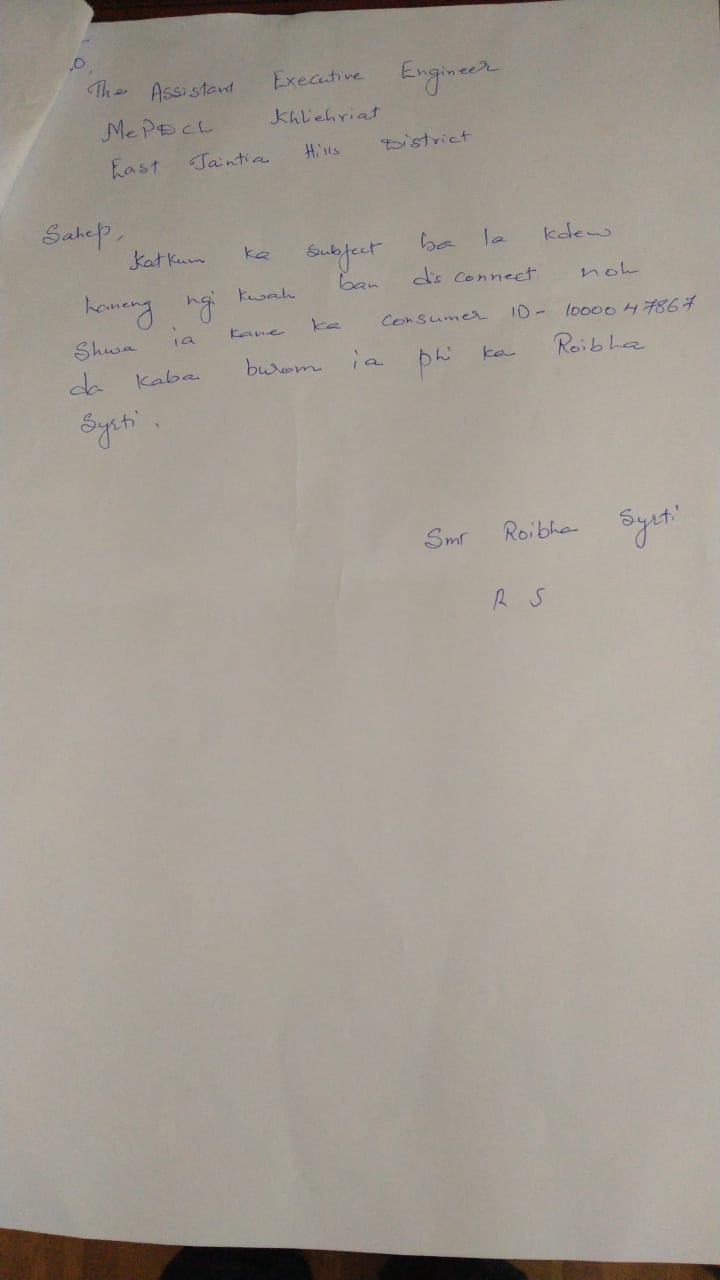 O,
The Assistant Executive Engineer
MePDCL Khliehriat
East Jaintia Hills District
Sahep,
Katkum ka Subject ba la kdew
haneng ngi kwah ban dis connect noh
Shwa ia kane ka Consumer ID- 1000047867
da kaba burom ia phi ka Roibha
Syrti.
Smr Roibha Syrti
R S